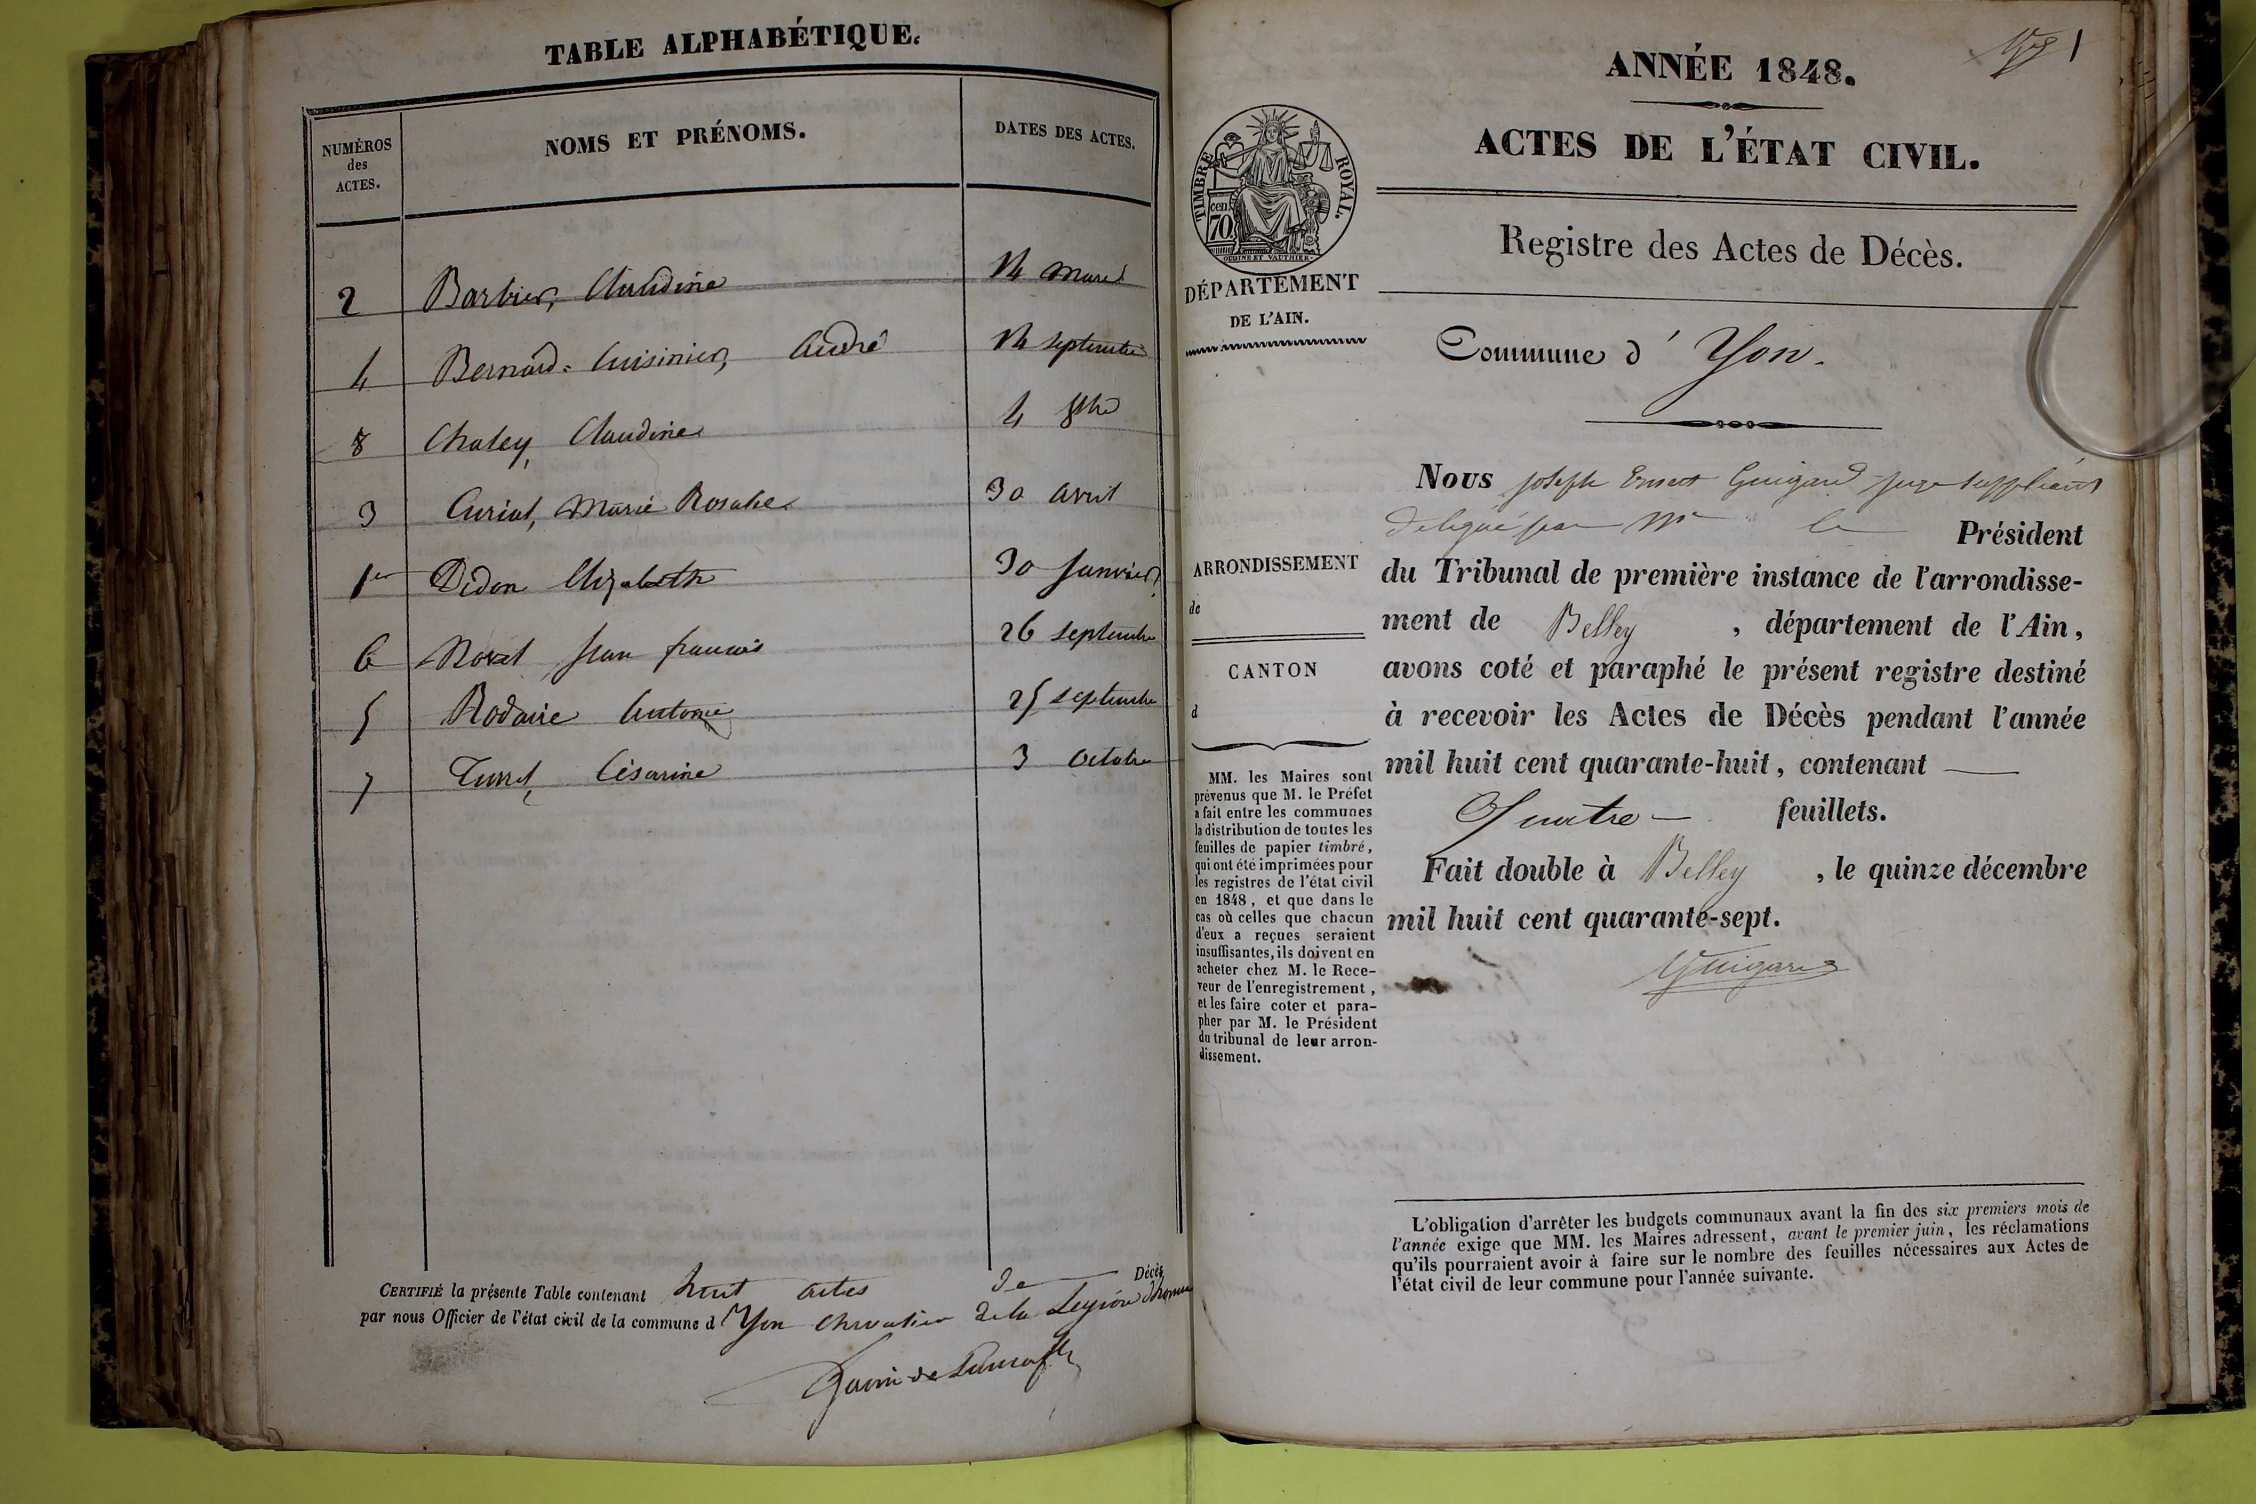 TABLE ALPHABÉTIQUE.
NUMÉROS
des
ACTES.
NOMS ET PRÉNOMS.
DATES DES ACTES.
2 Barbier, Claudine 14 mars
4 Bernard-Cuisinier, André 14 septembre
8 Chaley, Claudine 4 8bre
3 Curiat, Marie Rosalie 30 avril
1er Didon Elizabeth 30 Janvier
6 Jean francois 26 septembre
5 Rodaire Antoine 25 septembre
7 Césarine 3 octobre
CERTIFIÉ la présente Table contenant huit actes de Décès
par nous Officier de l'état civil de la commune d'Yon chevalier de la Legion d'honneur
1
ANNÉE 1848.
ACTES DE L'ÉTAT CIVIL.
Registre des Actes de Décès.
TIMBRE ROYAL.
cen.
70.
OUDINE ET VAUTHIER
DÉPARTEMENT
DE L'AIN.
ARRONDISSEMENT
de
CANTON
d
MM. les Maires sont
prévenus que M. le Préfet
a fait entre les communes
la distribution de toutes les
feuilles de papier timbré,
qui ont été imprimées pour
les registres de l'état civil
en 1848, et que dans le
cas où celles que chacun
d'eux a reçues seraient
insuffisantes, ils doivent en
acheter chez M. le Rece-
veur de l'enregistrement,
et les faire coter et para-
pher par M. le Président
du tribunal de leur arron-
dissement.
Commune d'Yon.
Nous joseph Ernest Guigard juge suppléant
délégué par Mr le Président
du Tribunal de première instance de l'arrondisse-
ment de Belley, département de l'Ain,
avons coté et paraphé le présent registre destiné
à recevoir les Actes de Décès pendant l'année
mil huit cent quarante-huit, contenant
Quatre feuillets.
Fait double à Belley, le quinze décembre
mil huit cent quarante-sept.
Guigard
L'obligation d'arrêter les budgets communaux avant la fin des six premiers mois de
l'année exige que MM. les Maires adressent, avant le premier juin, les réclamations
qu'ils pourraient avoir à faire sur le nombre des feuilles nécessaires aux Actes de
l'état civil de leur commune pour l'année suivante.